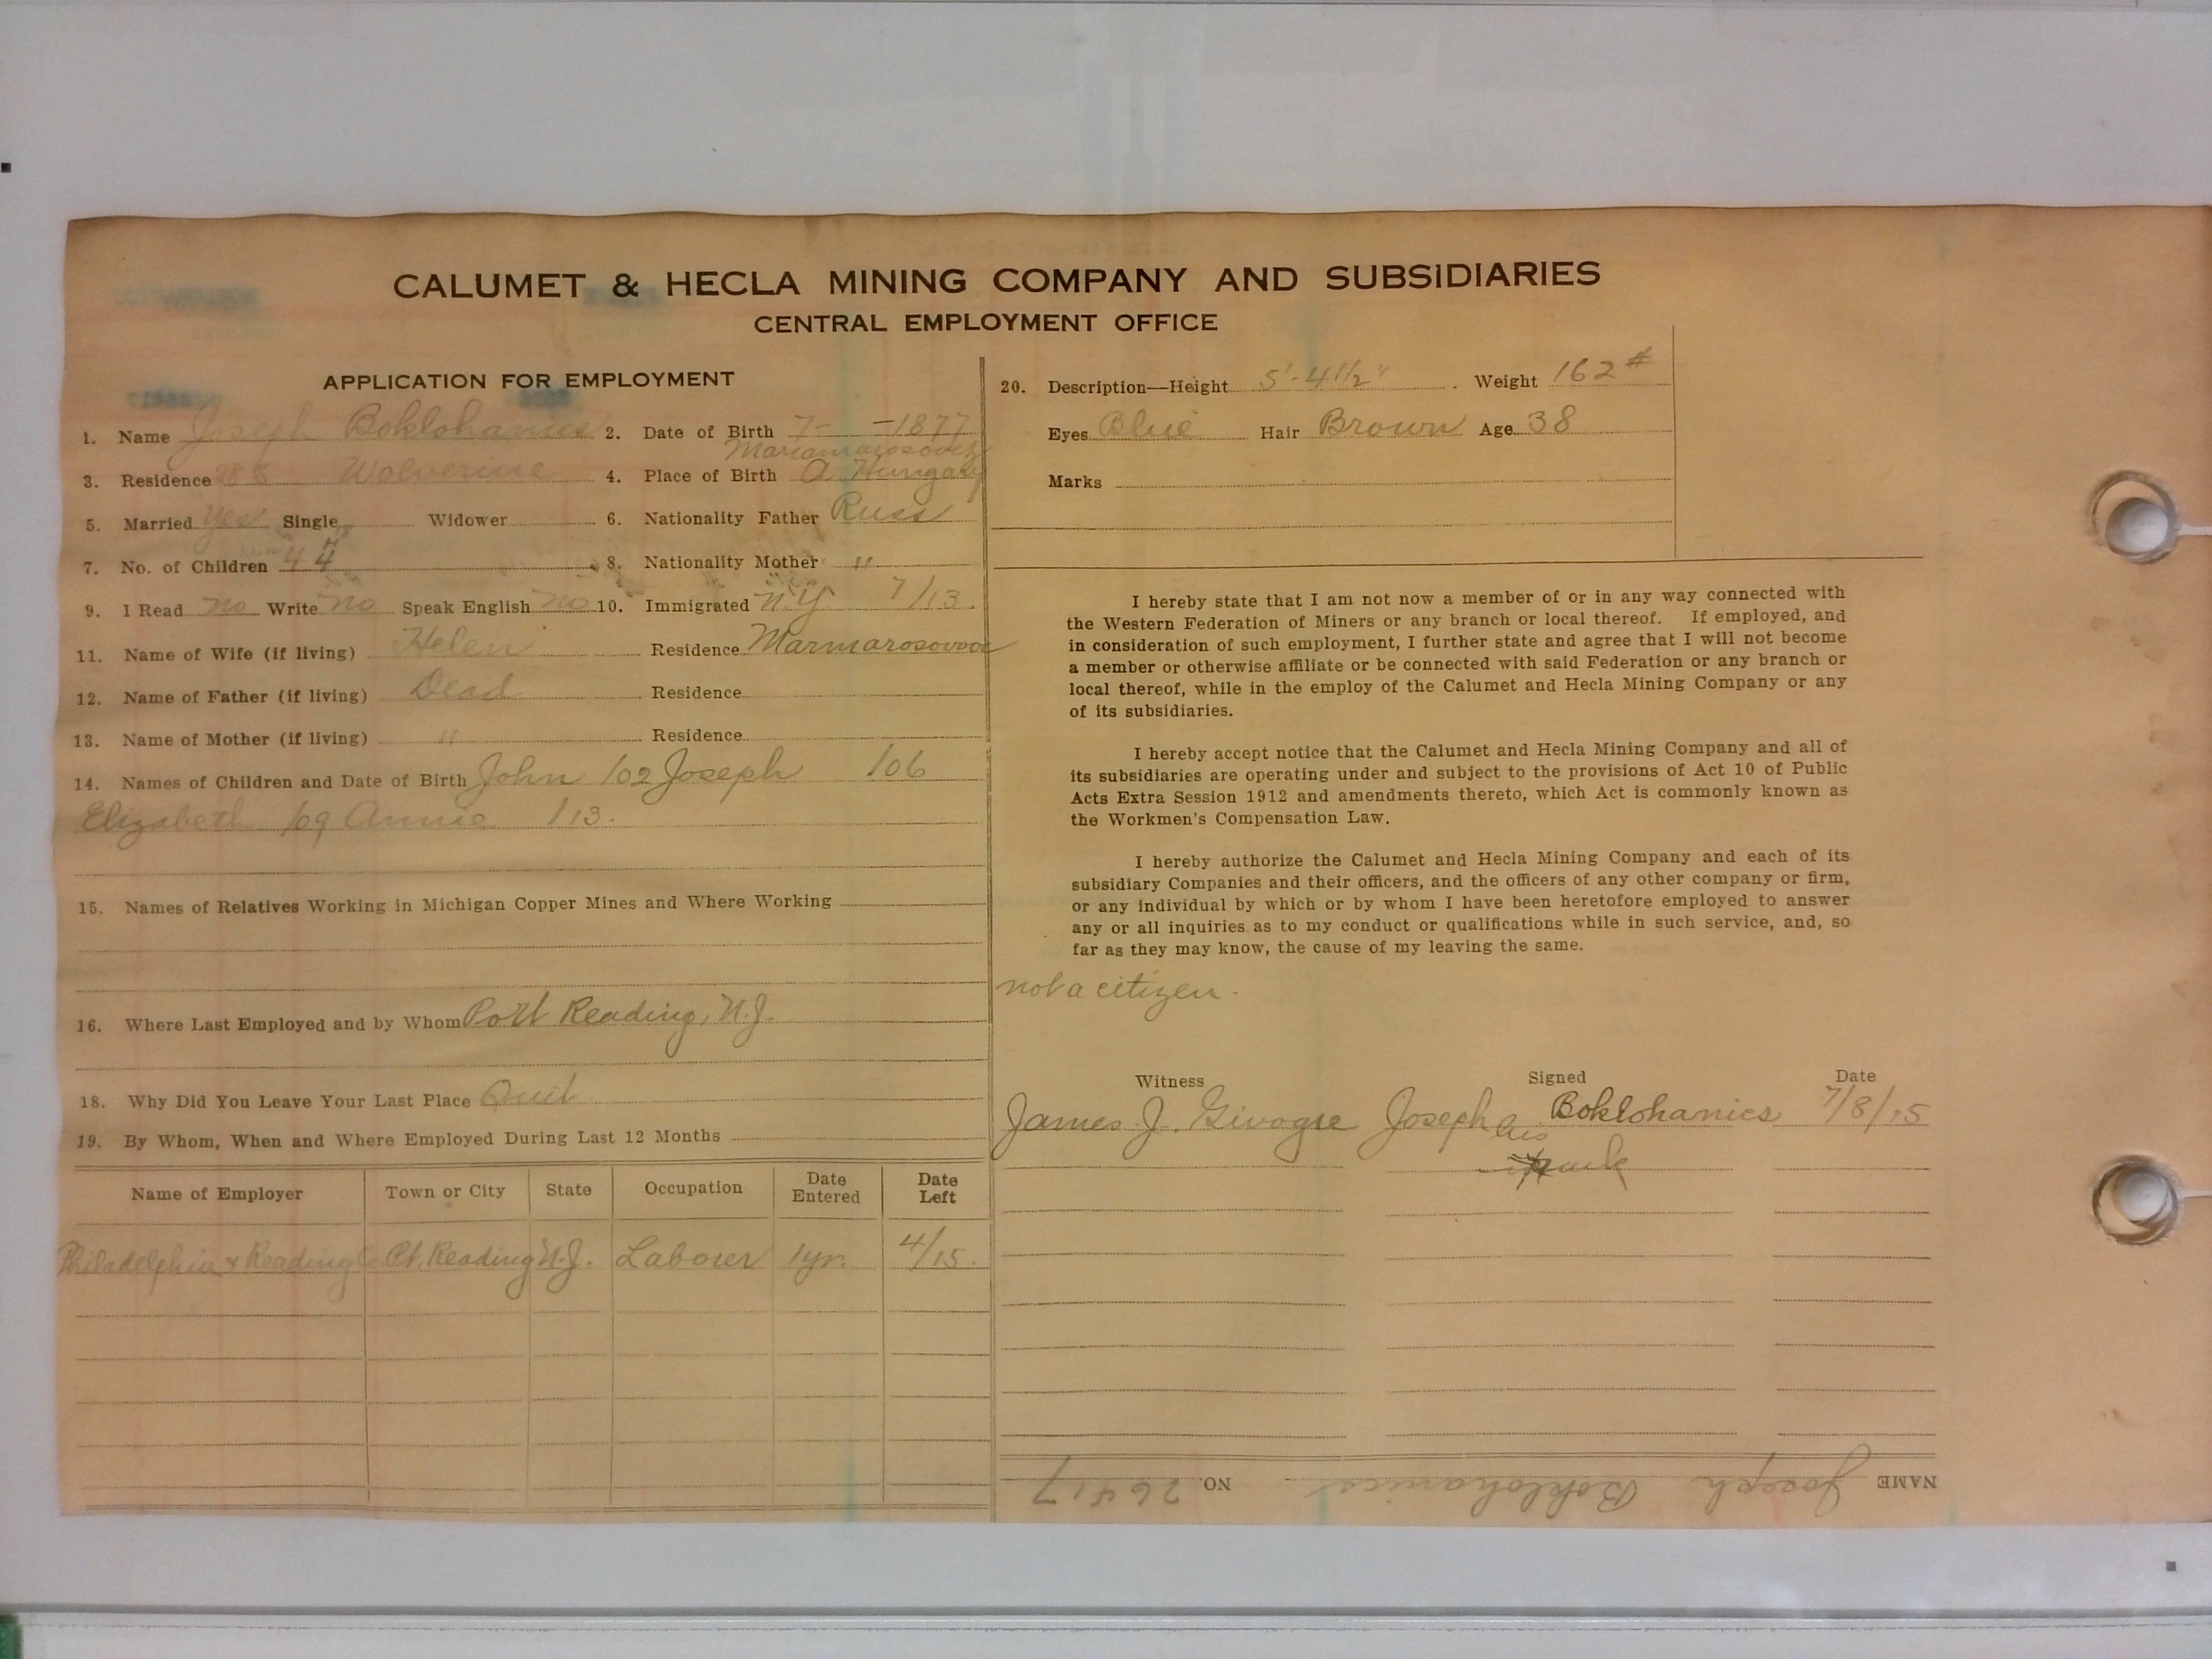 CALUMET & HECLA MINING COMPANY AND SUBSIDIARIES
CENTRAL EMPLOYMENT OFFICE
APPLICATION FOR EMPLOYMENT
1. Name Joseph Boklohanics 2. Date of Birth 7- -1877
3. Residence Wolverine 4. Place of Birth A. Hungary
5. Married Yes Single Widower 6. Nationality Father Russ
7. No. of Children 4 4 8. Nationality Mother "
9. I Read no Write no Speak English no 10. Immigrated N.Y. 7/13.
11. Name of Wife (if living) Helen Residence
12. Name of Father (if living) Dead Residence
13. Name of Mother (if living) " Residence
14. Names of Children and Date of Birth John /02 Joseph /06
Elizabeth /09 Annie /13.
15. Names of Relatives Working in Michigan Copper Mines and Where Working
16. Where Last Employed and by Whom Port Reading, N.J.
18. Why Did You Leave Your Last Place Quit
19. By Whom, When and Where Employed During Last 12 Months
Name of Employer Town or City State Occupation Date Entered Date Left
Philadelphia & Reading Pt. Reading N.J. Laborer 1yr. 4/15.
20. Description—Height 5'-4 1/2" . Weight 162#
Eyes Blue Hair Brown Age 38
Marks
I hereby state that I am not now a member of or in any way connected with
the Western Federation of Miners or any branch or local thereof. If employed, and
in consideration of such employment, I further state and agree that I will not become
a member or otherwise affiliate or be connected with said Federation or any branch or
local thereof, while in the employ of the Calumet and Hecla Mining Company or any
of its subsidiaries.
I hereby accept notice that the Calumet and Hecla Mining Company and all of
its subsidiaries are operating under and subject to the provisions of Act 10 of Public
Acts Extra Session 1912 and amendments thereto, which Act is commonly known as
the Workmen's Compensation Law.
I hereby authorize the Calumet and Hecla Mining Company and each of its
subsidiary Companies and their officers, and the officers of any other company or firm,
or any individual by which or by whom I have been heretofore employed to answer
any or all inquiries as to my conduct or qualifications while in such service, and, so
far as they may know, the cause of my leaving the same.
not a citizen.
Witness Signed Date
James J. Joseph Boklohanics 7/8/15
his
X mark
NAME Joseph Boklohanics NO. 26417